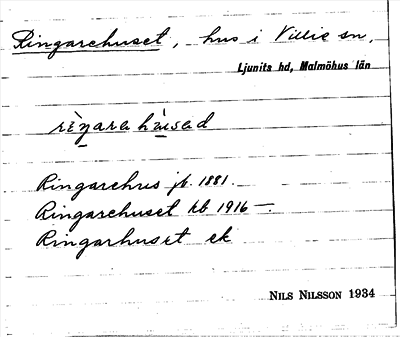 Ringarehuset, hus i Villie sn,
Ljunits hd, Malmöhus län
rìŋarə hùsəd
Ringarehus jb. 1881.
Ringarehuset kb 1916 —.
Ringarhuset ek
NILS NILSSON 1934